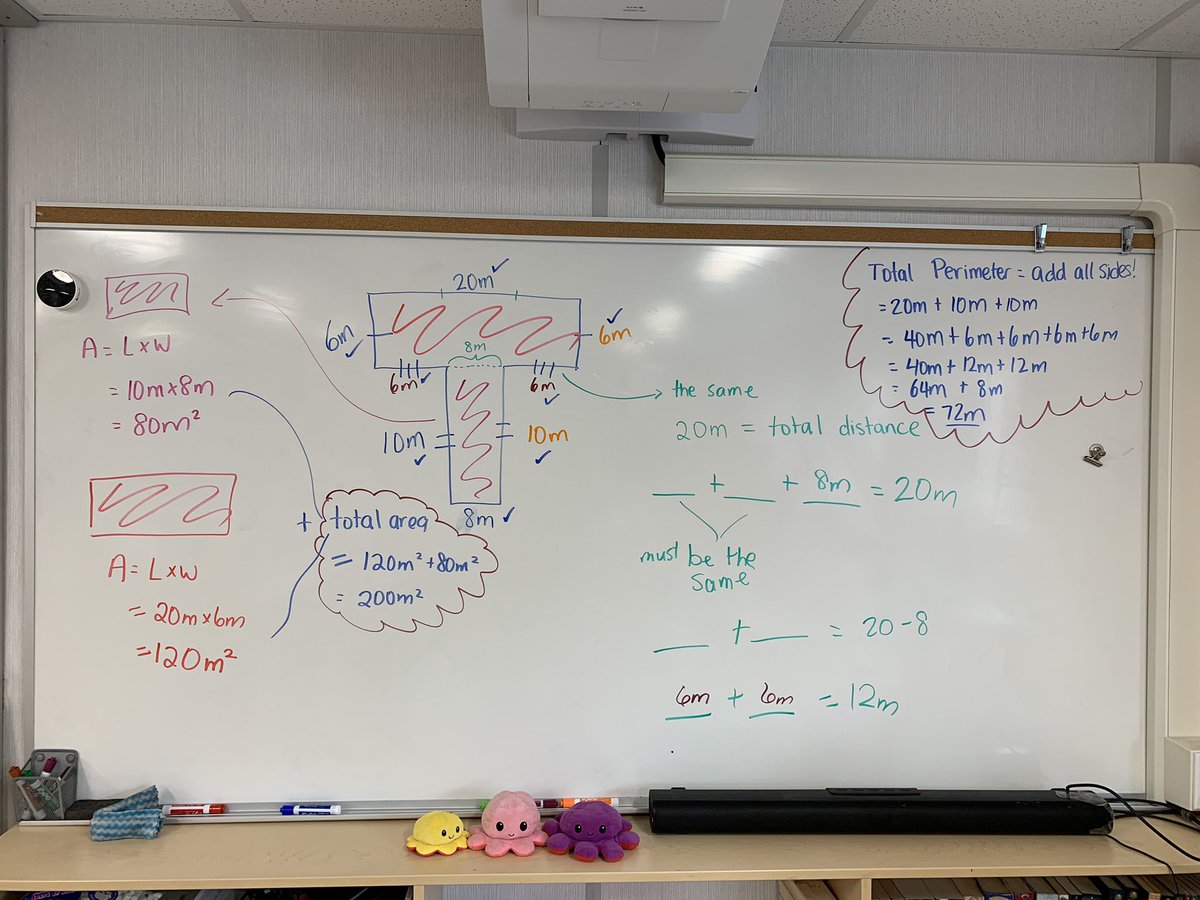 A = L x W
= 10m x 8m
= 80m²
A = L x W
= 20m x 6m
= 120m²
20m
6m
6m
8m
6m
6m
10m
10m
8m
+ total area
= 120m² + 80m²
= 200m²
the same
20m = total distance
__ + __ + 8m = 20m
must be the
same
__ + __ = 20 - 8
6m + 6m = 12m
Total Perimeter = add all sides!
= 20m + 10m + 10m
= 40m + 6m + 6m + 6m + 6m
= 40m + 12m + 12m
= 64m + 8m
= 72m